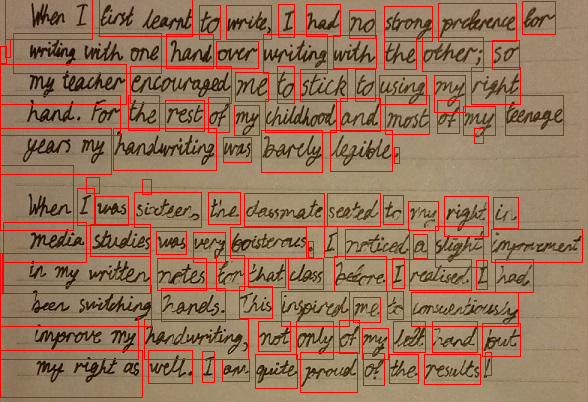 When I first learnt to write, I had no strong preference for
writing with one hand over writing with the other; so
my teacher encouraged me to stick to using my right
hand. For the rest of my childhood and most of my teenage
years my handwriting was barely legible.
When I was sixteen, the classmate seated to my right in
media studies was very boisterous. I noticed a slight improvement
in my written notes for that class before I realised I had
been switching hands. This inspired me to conscientiously
improve my handwriting, not only of my left hand but
my right as well. I am quite proud of the results!